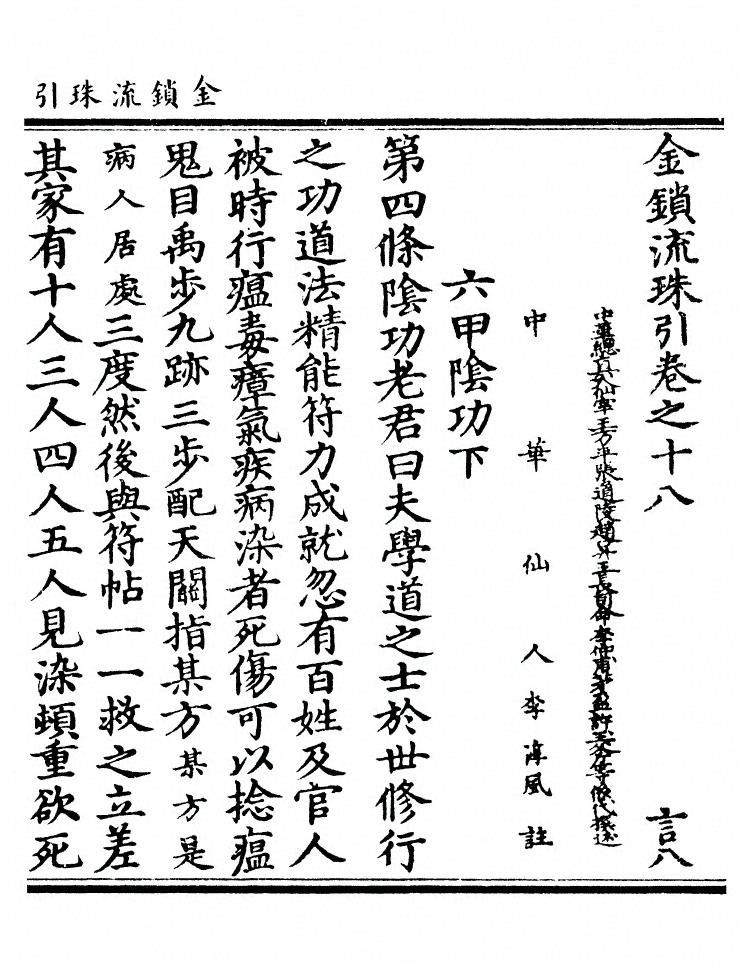 金鎖流珠引
金鎖流珠引卷之十八 言八
中華仙人李淳風註
六甲陰功下
第四條陰功老君曰夫學道之士於世修行
之功道法精能符力成就忽有百姓及官人
被時行瘟毒瘴氣疾病染者死傷可以捻瘟
鬼目禹步九跡三步配天關指某方某方是
病人居處三度然後與符帖一一救之立差
其家有十人三人四人五人見染頓重欲死